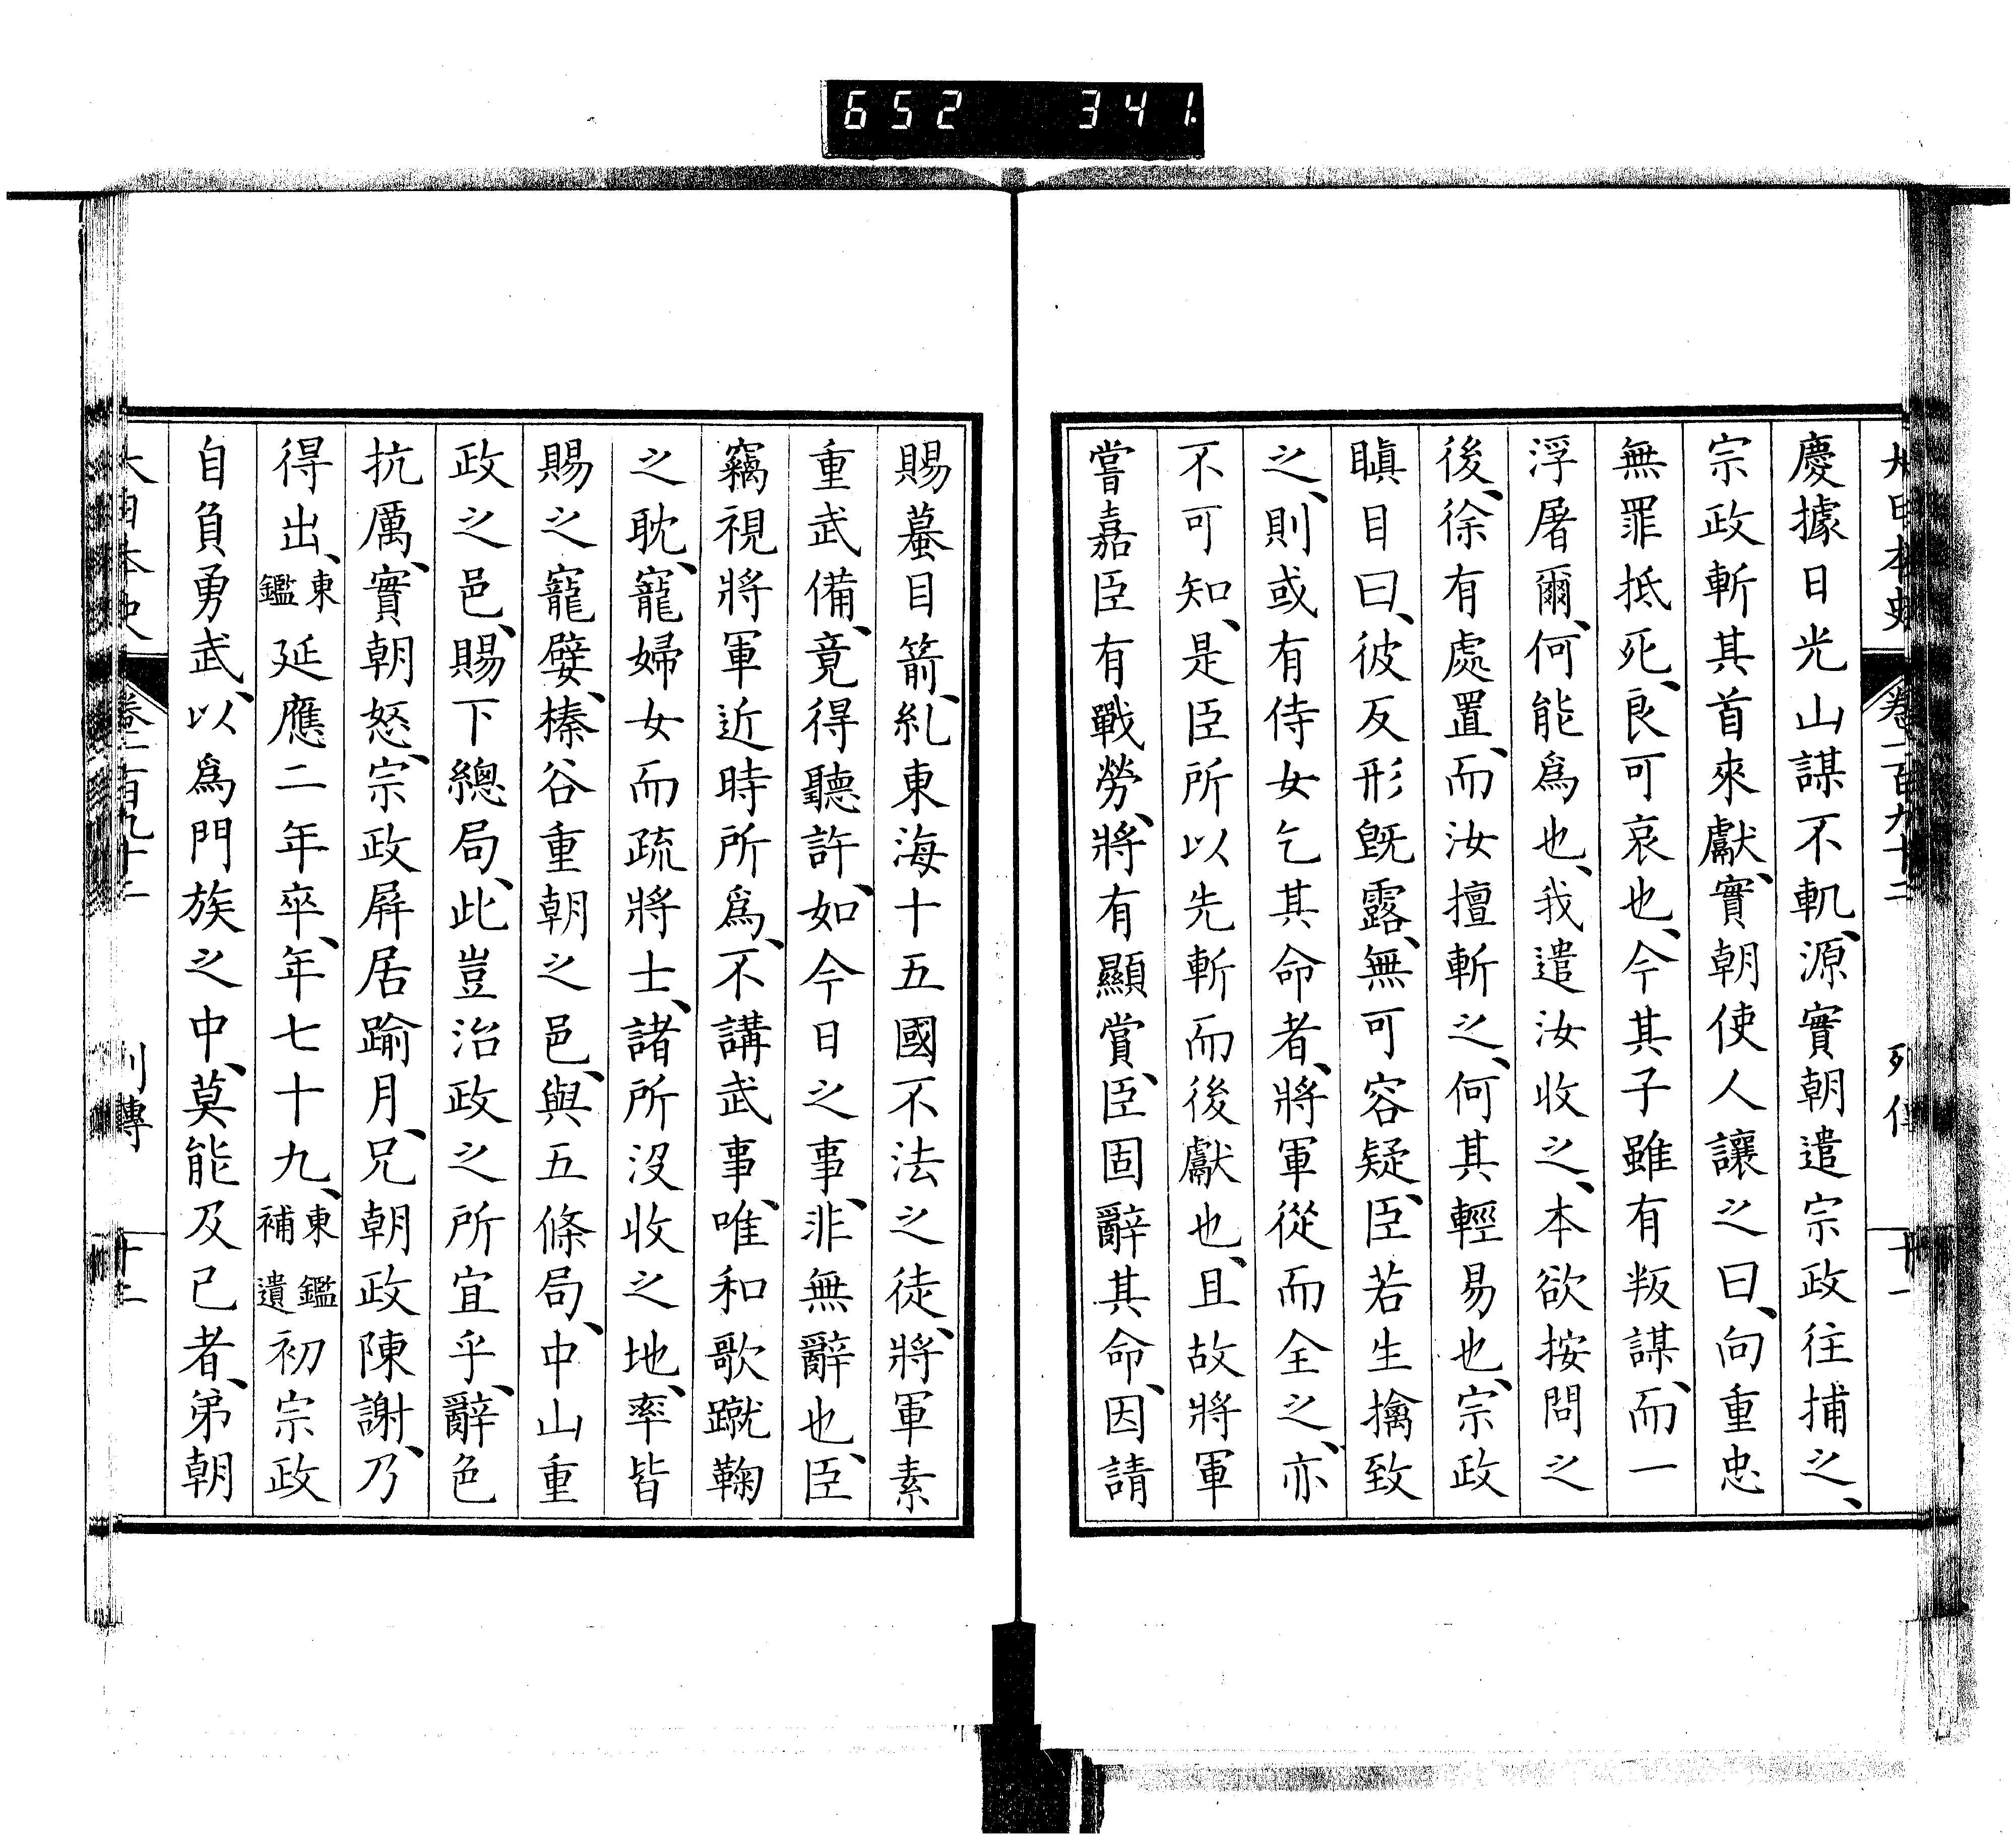 652 341.
大日本史 卷一百九十二 列傳 十一
慶據日光山謀不軌、源實朝遣宗政往捕之、
宗政斬其首來獻、實朝使人讓之曰、向重忠
無罪抵死、良可哀也、今其子雖有叛謀、而一
浮屠爾、何能爲也、我遣汝收之、本欲按問之
後、徐有處置、而汝擅斬之、何其輕易也、宗政
瞋目曰、彼反形旣露、無可容疑、臣若生擒致
之、則或有侍女乞其命者、將軍從而全之、亦
不可知、是臣所以先斬而後獻也、且故將軍
嘗嘉臣有戰勞、將有顯賞、臣固辭其命、因請
賜蟇目箭、糺東海十五國不法之徒、將軍素
重武備、竟得聽許、如今日之事、非無辭也、臣
竊視將軍近時所爲、不講武事、唯和歌蹴鞠
之耽、寵婦女而疏將士、諸所沒收之地、率皆
賜之寵嬖、榛谷重朝之邑、與五條局、中山重
政之邑、賜下總局、此豈治政之所宜乎、辭色
抗厲、實朝怒、宗政屏居踰月、兄朝政陳謝、乃
得出、東鑑延應二年卒、年七十九、東鑑補遺初宗政
自負勇武、以爲門族之中、莫能及己者、弟朝
大日本史 卷一百九十二 列傳 十二